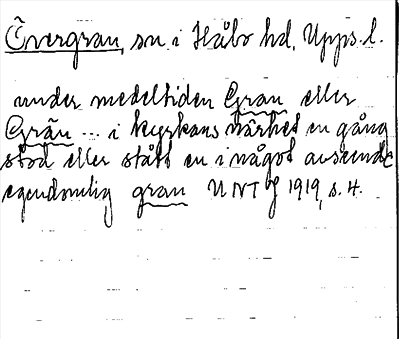 Övergran, sn i Håbo hd, Upps. l.
under medeltiden Gran eller
Grän ... i kyrkans närhet en gång
stod eller stått en i något avseende
egendomlig gran UNT 1919, s. 4.